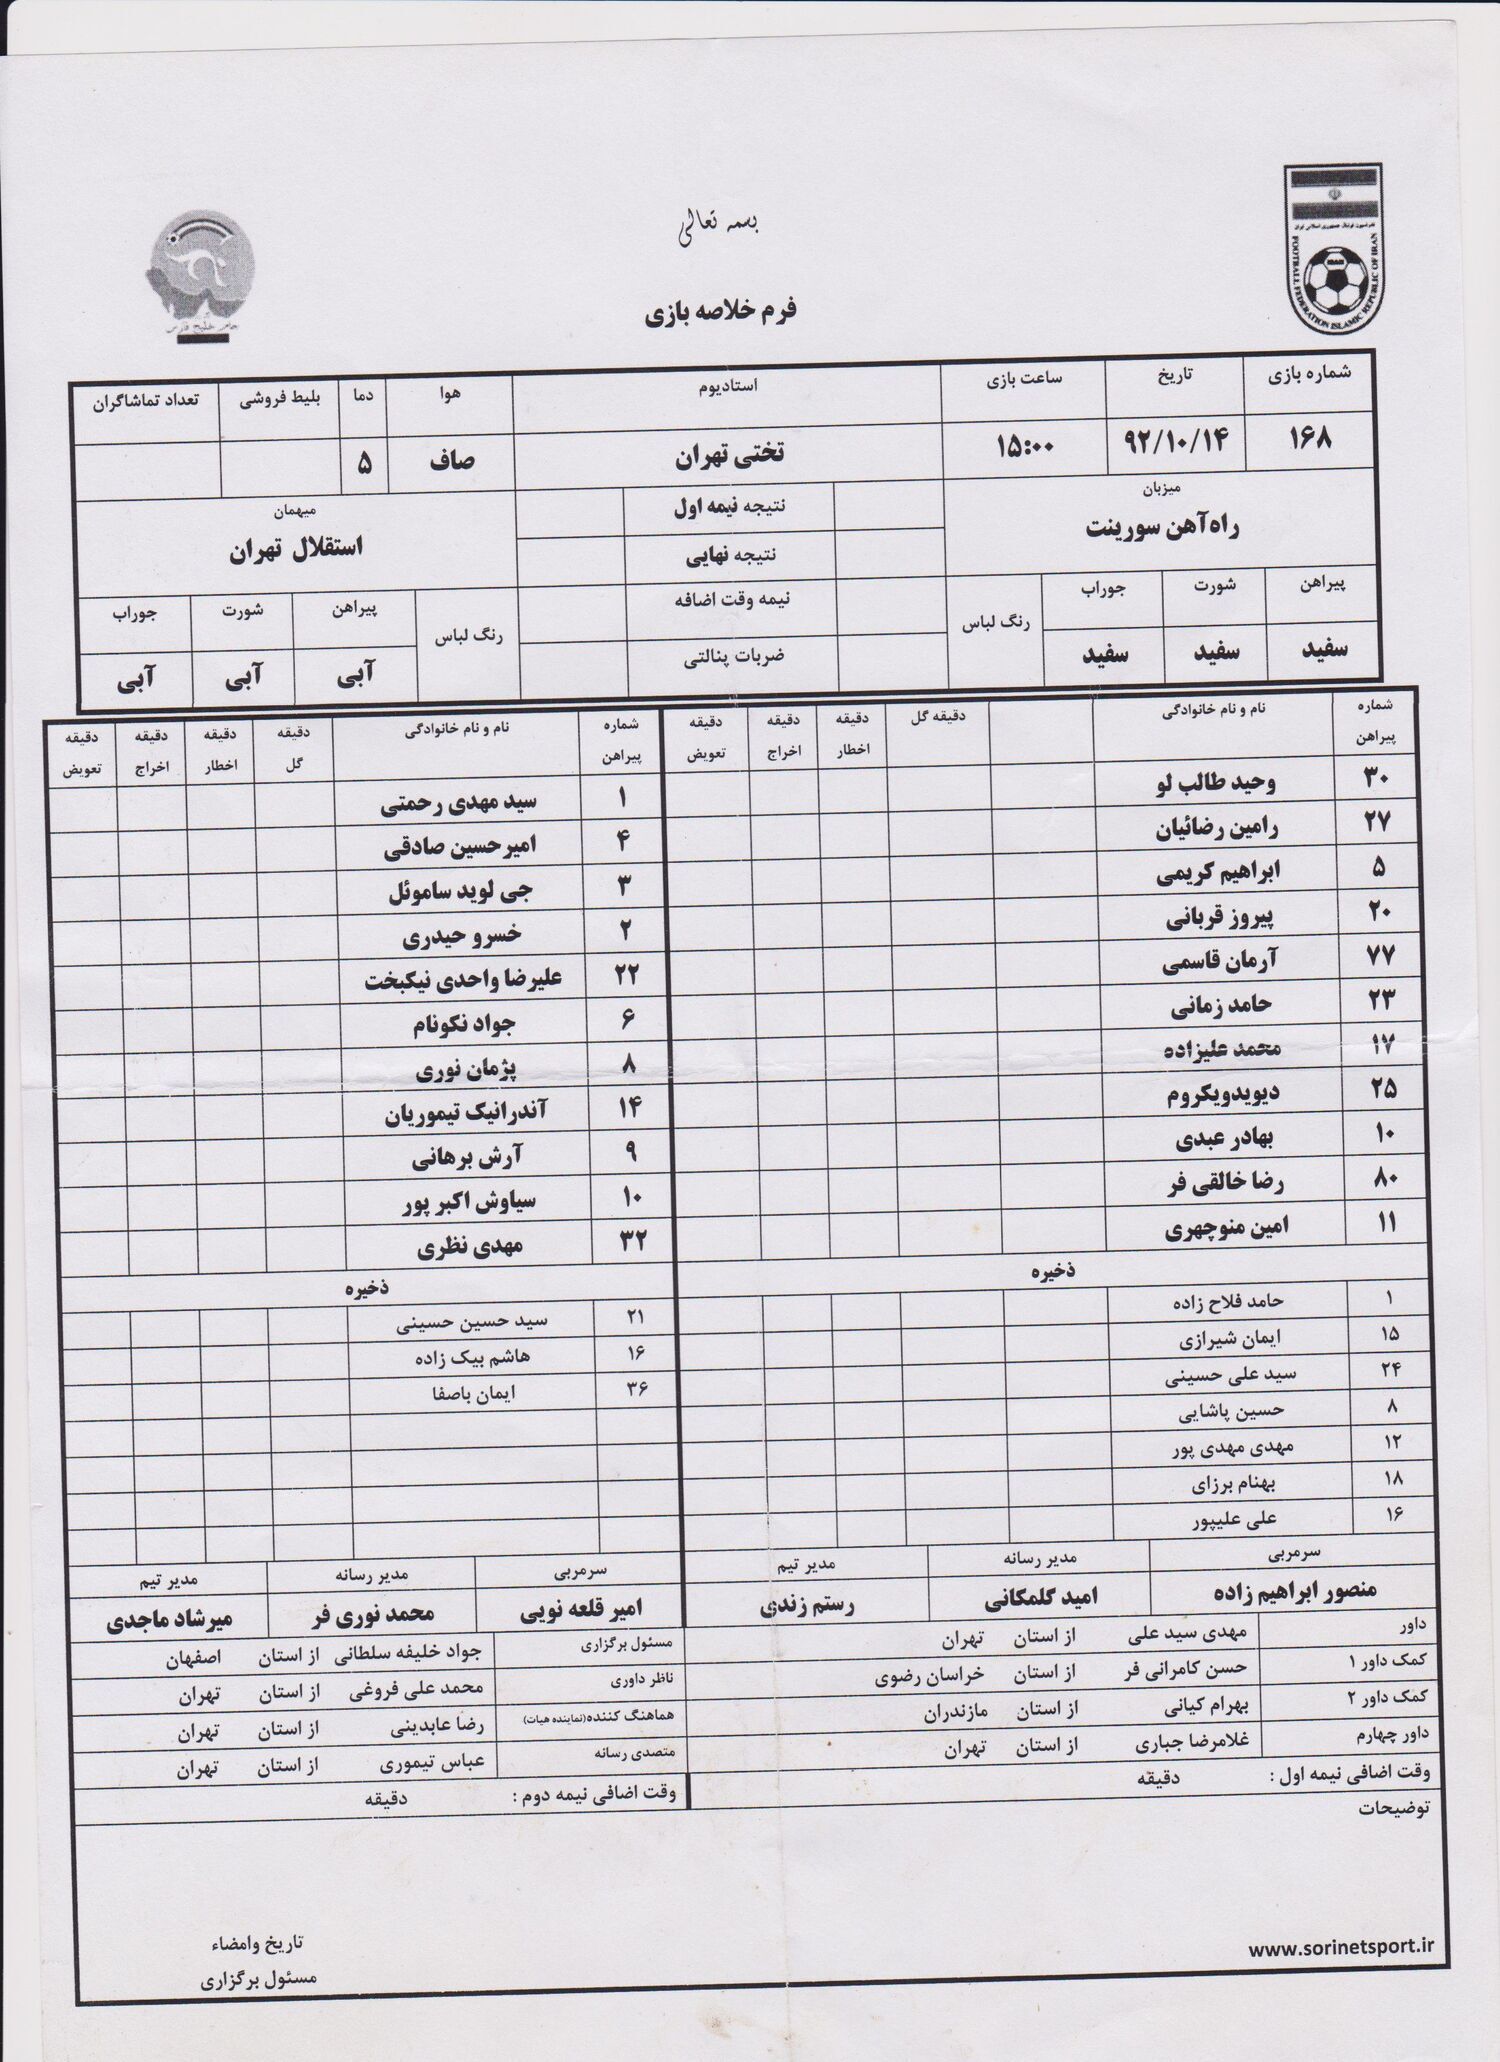 بسمه تعالی
فدراسیون فوتبال جمهوری اسلامی ایران
FOOTBALL FEDERATION ISLAMIC REPUBLIC OF IRAN
جام خلیج فارس
فرم خلاصه بازی
شماره بازی تاریخ ساعت بازی استادیوم هوا دما بلیط فروشی تعداد تماشاگران
۱۶۸ ۹۲/۱۰/۱۴ ۱۵:۰۰ تختی تهران صاف ۵
میزبان نتیجه نیمه اول میهمان
راه‌آهن سورینت نتیجه نهایی استقلال تهران
پیراهن شورت جوراب رنگ لباس نیمه وقت اضافه رنگ لباس پیراهن شورت جوراب
سفید سفید سفید ضربات پنالتی آبی آبی آبی
شماره پیراهن نام و نام خانوادگی دقیقه گل دقیقه اخطار دقیقه اخراج دقیقه تعویض شماره پیراهن نام و نام خانوادگی دقیقه گل دقیقه اخطار دقیقه اخراج دقیقه تعویض
۳۰ وحید طالب لو ۱ سید مهدی رحمتی
۲۷ رامین رضائیان ۴ امیرحسین صادقی
۵ ابراهیم کریمی ۳ جی لوید ساموئل
۲۰ پیروز قربانی ۲ خسرو حیدری
۷۷ آرمان قاسمی ۲۲ علیرضا واحدی نیکبخت
۲۳ حامد زمانی ۶ جواد نکونام
۱۷ محمد علیزاده ۸ پژمان نوری
۲۵ دیویدویکروم ۱۴ آندرانیک تیموریان
۱۰ بهادر عبدی ۹ آرش برهانی
۸۰ رضا خالقی فر ۱۰ سیاوش اکبر پور
۱۱ امین منوچهری ۳۲ مهدی نظری
ذخیره ذخیره
۱ حامد فلاح زاده ۲۱ سید حسین حسینی
۱۵ ایمان شیرازی ۱۶ هاشم بیک زاده
۲۴ سید علی حسینی ۳۶ ایمان باصفا
۸ حسین پاشایی
۱۲ مهدی مهدی پور
۱۸ بهنام برزای
۱۶ علی علیپور
سرمربی مدیر رسانه مدیر تیم سرمربی مدیر رسانه مدیر تیم
منصور ابراهیم زاده امید گلمکانی رستم زندی امیر قلعه نویی محمد نوری فر میرشاد ماجدی
داور مهدی سید علی از استان تهران مسئول برگزاری جواد خلیفه سلطانی از استان اصفهان
کمک داور ۱ حسن کامرانی فر از استان خراسان رضوی ناظر داوری محمد علی فروغی از استان تهران
کمک داور ۲ بهرام کیانی از استان مازندران هماهنگ کننده(نماینده هیات) رضا عابدینی از استان تهران
داور چهارم غلامرضا جباری از استان تهران متصدی رسانه عباس تیموری از استان تهران
وقت اضافی نیمه اول : دقیقه وقت اضافی نیمه دوم : دقیقه
توضیحات
تاریخ وامضاء
www.sorinetsport.ir
مسئول برگزاری